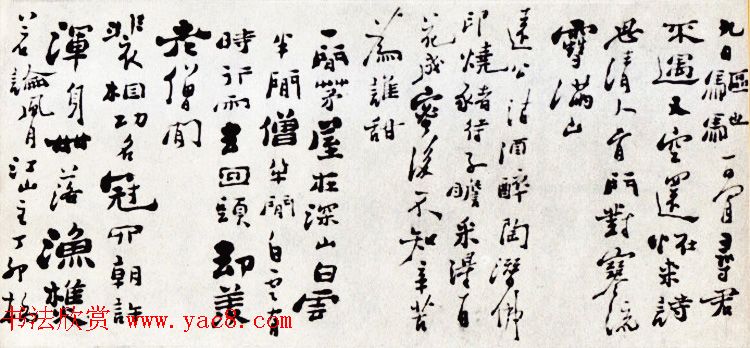 九日驅馳一日閒尋君
不遇又空還怪來詩
思清人骨門對寒流
雪滿山
遠公沽酒醉陶潛佛
印燒豬待子瞻采得百
花成蜜後不知辛苦
為誰甜
一間茅屋在深山白雲
半間僧半間白雲有
時行雨去回頭却羨
老僧閒
裴相功名冠四朝許
渾身世落漁樵
若論風月江山主丁卯橋
书法欣赏 www.yac8.com